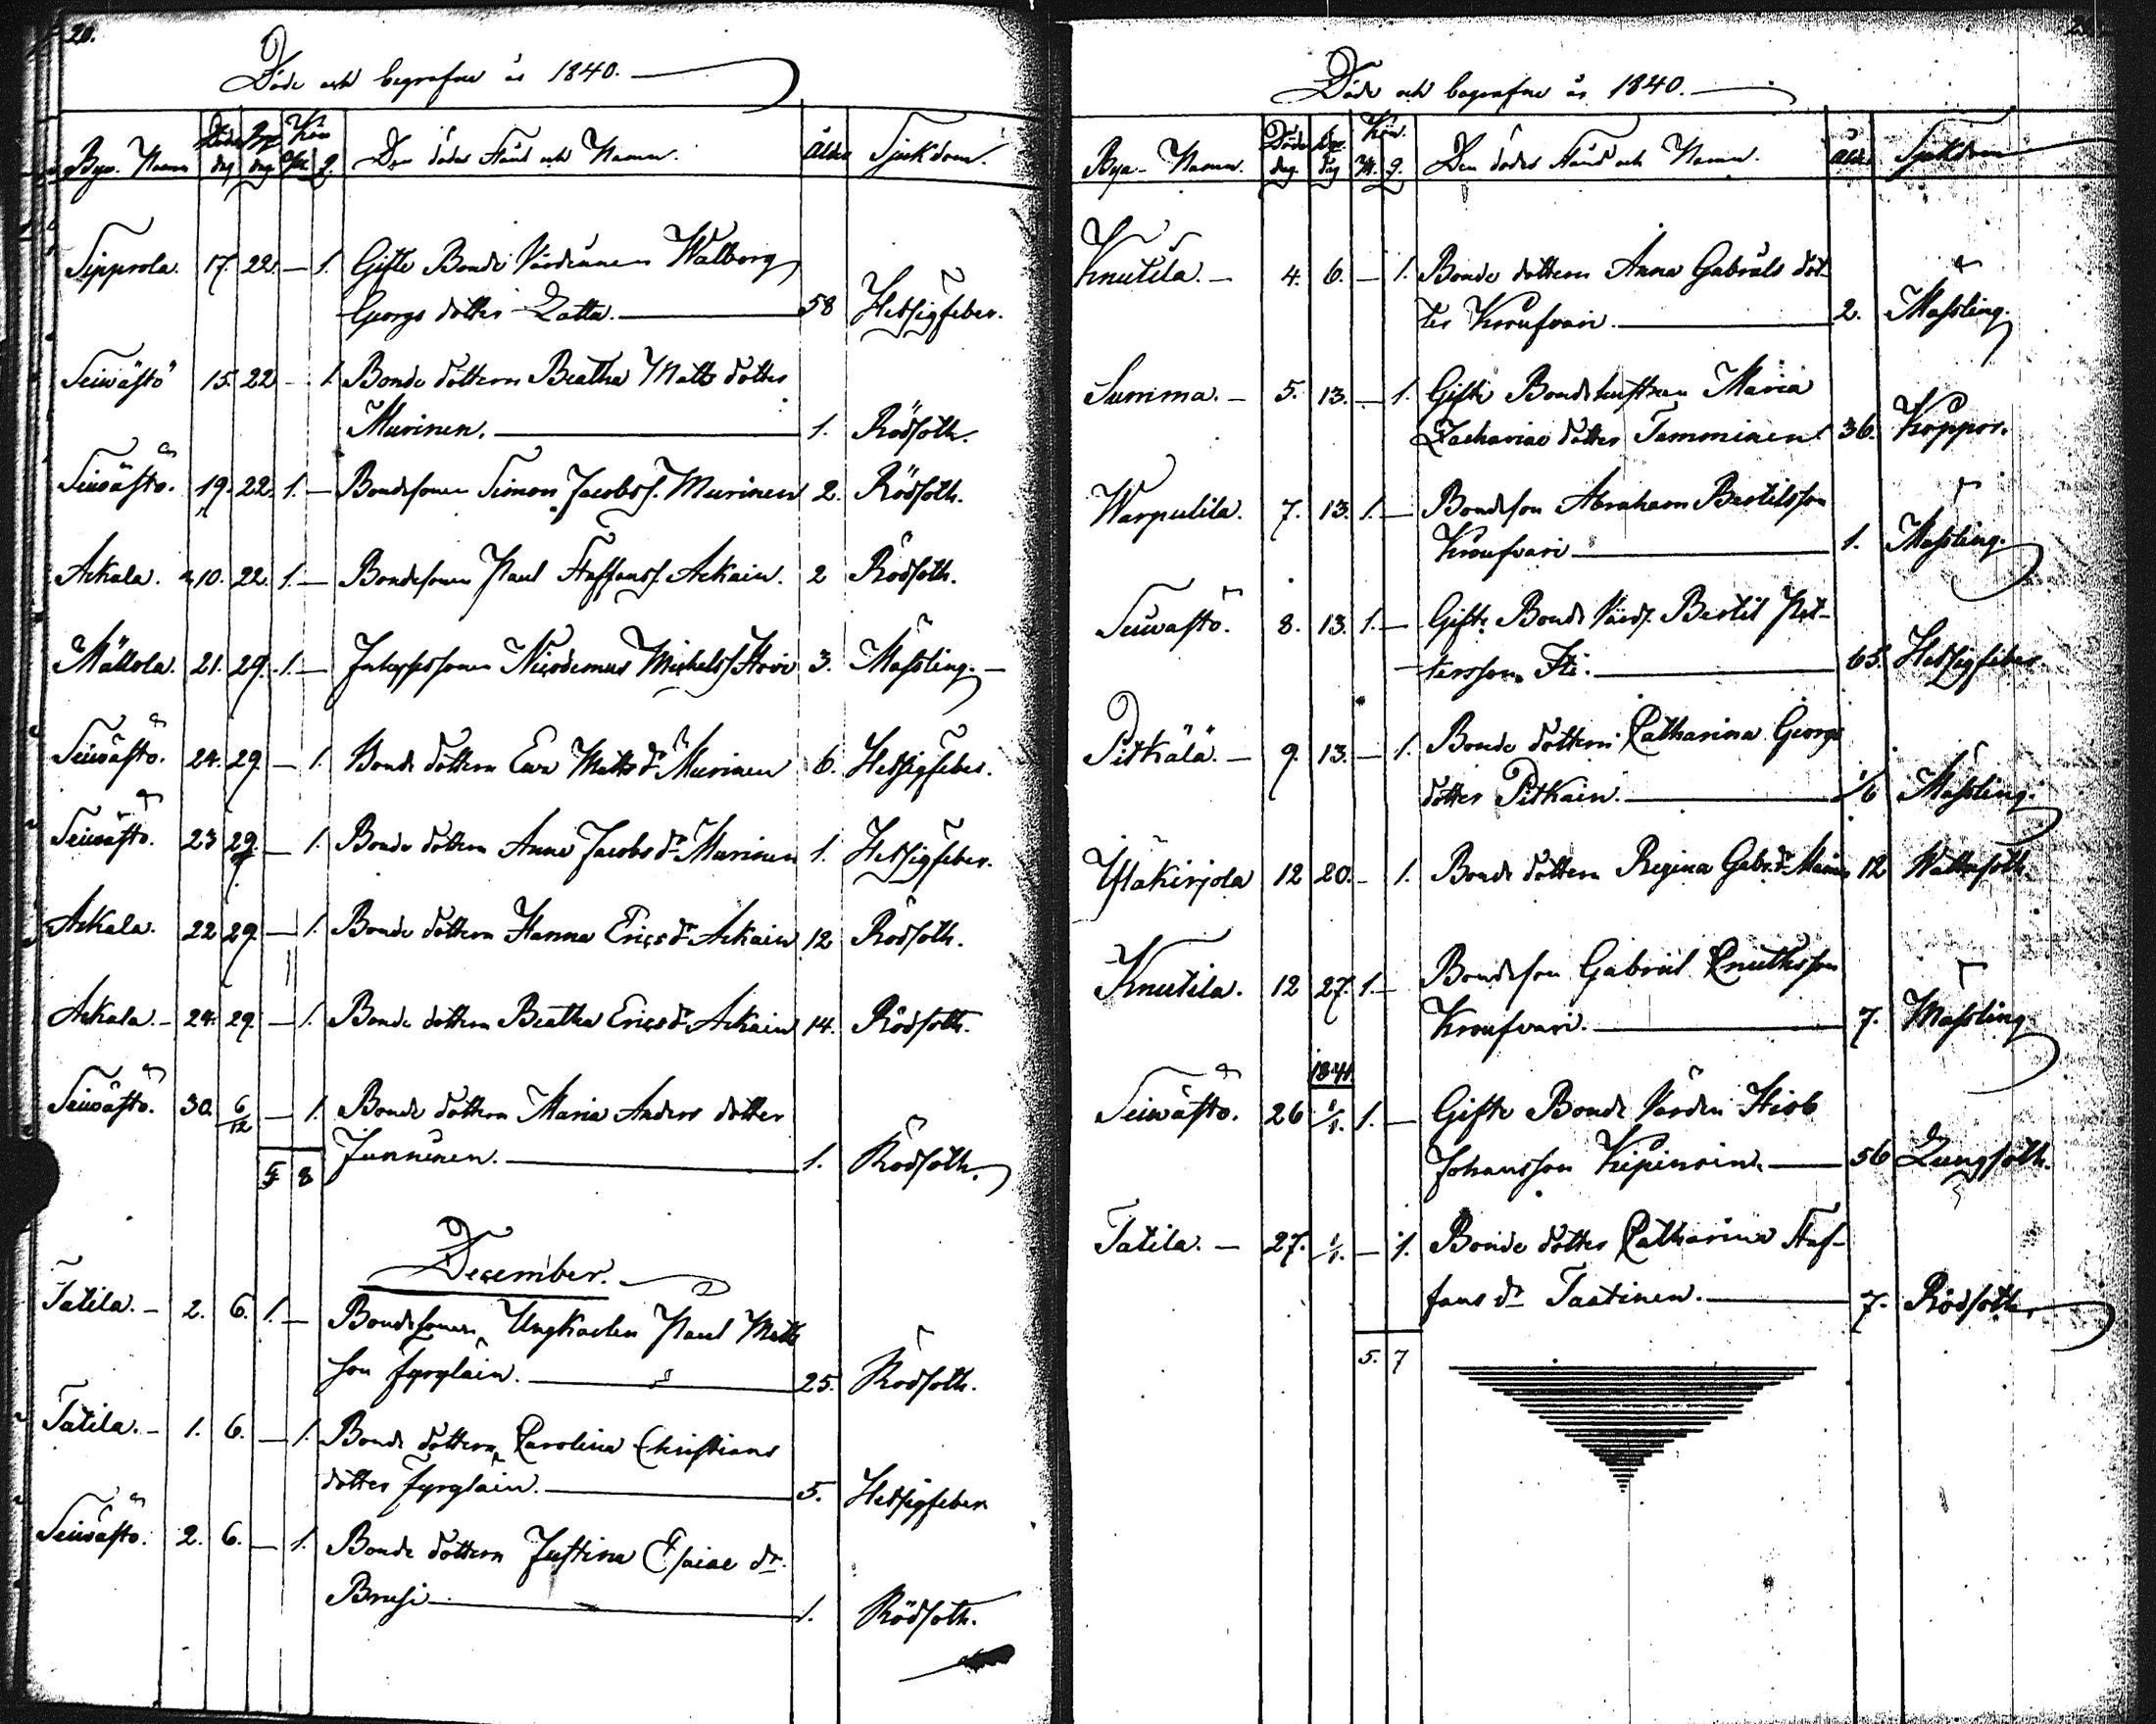 20.
Döde och begrafne år 1840.
Bya-Namn Döds dag Begr. dag Kön M. Q. Den dödes Stånd och Namn. Ålder Sjukdom.
Sipprola. 17. 22. — 1. Gifte Bonde Värdinnan Walborg
Georgs dotter Latta. — 58 Hetsigfeber.
Seivästö 15. 22 — 1. Bonde dottern Beatha Matts dotter
Murinen. — 1. Rödsoth.
Seivästö. 19. 22. 1. — Bondesonen Simon Jacobs s. Murinen 2. Rödsoth.
Ackala. 10. 22. 1. — Bondesonen Paul Staffans s. Ackain. 2 Rödsoth.
Mättola. 21. 29. 1. — Nicodemus Michels s. 3. Massling. —
Seivästö. 24. 29. — 1. Bonde dottern Eva Matts dr Murinen 6. Hetsigfeber.
Seivästö. 23 29. — 1. Bonde dottern Anna Jacobs dr Murinen 1. Hetsigfeber.
Ackala. 22 29. — 1. Bonde dottern Hanna Erics dr Ackain 12 Rödsoth.
Ackala. — 24. 29. — 1. Bonde dottern Beatha Erics dr Ackain 14. Rödsoth.
Seivästö. 30. 6/12 — 1. Bonde dottern Maria Anders dotter
Junninen. — 1. Rödsoth.
8
December.
Tatila. — 2. 6. 1. — Bondesonen Ungkarlen Paul Matts
son — 25. Rödsoth.
Tatila. — 1. 6. — 1. Bonde dottern Carolina Christians
dotter — 5. Hetsigfeber
Seivästö. 2. 6. — 1. Bonde dottern Justina Esaiae dr.
Brusi — 1. Rödsoth.
Döde och begrafne år 1840.
Bya-Namn. Döds dag. Begr. dag Kön. M. Q. Den dödes Stånd och Namn. Ålder Sjukdom
Knutila. — 4. 6. — 1. Bonde dottern Anna Gabriels dot-
ter Kroufvari. — 2. Massling.
Summa. — 5. 13. — 1. Gifte Bondehustrun Maria
Zachariae dotter Tamminen. 36. Koppor.
Warpulila. 7. 13. 1. — Bondeson Abraham Bertilsson
Kroufvari — 1. Massling.
Seivästö. 8. 13. 1. — Gifte Bonde Värd. Bertil Pet-
tersson — 65. Hetsigfeber
Pitkälä. — 9. 13. — 1. Bonde dottern Catharina Georgs
dotter Pitkain. — 1/6 Massling.
Yläkirjola 12 20. — 1. Bonde dottern Regina Gabr. dr 12 Wattusoth.
Knutila. 12 27. 1. — Bondeson Gabriel Cnuthsson
Kroufvari. — 7. Massling
1841.
Seivästö. 26 1/1. 1. — Gifte Bonde Värden Hiob
Johansson — 56 Lungsoth.
Tatila. — 27. 1/1. — 1. Bonde dotter Catharina Staf-
fans dr Taatinen. — 7. Rödsoth.
5. 7